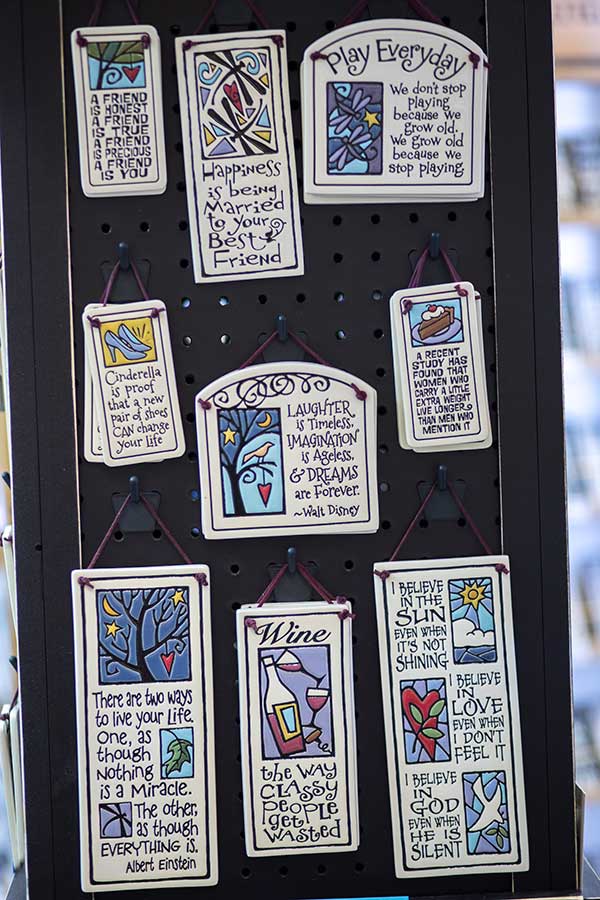 A FRIEND
IS HONEST
A FRIEND
IS TRUE
A FRIEND
IS PRECIOUS
A FRIEND
IS YOU
Happiness
is being
Married
to your
Best
Friend
Play Everyday
We don't stop
playing
because we
grow old.
We grow old
because we
stop playing.
Cinderella
is proof
that a new
pair of shoes
CAN change
your life
LAUGHTER
is Timeless,
IMAGINATION
is Ageless,
& DREAMS
are Forever.
~Walt Disney
A RECENT
STUDY HAS
FOUND THAT
WOMEN WHO
CARRY A LITTLE
EXTRA WEIGHT
LIVE LONGER
THAN MEN WHO
MENTION IT
There are two ways
to live your life.
One, as
though
Nothing
is a Miracle.
The other,
as though
EVERYTHING is.
Albert Einstein
Wine
the WAY
CLASSY
People
get
Wasted
I BELIEVE
IN THE
SUN
EVEN WHEN
IT'S NOT
SHINING
I BELIEVE
IN
LOVE
EVEN WHEN
I DON'T
FEEL IT
I BELIEVE
IN
GOD
EVEN WHEN
HE IS
SILENT